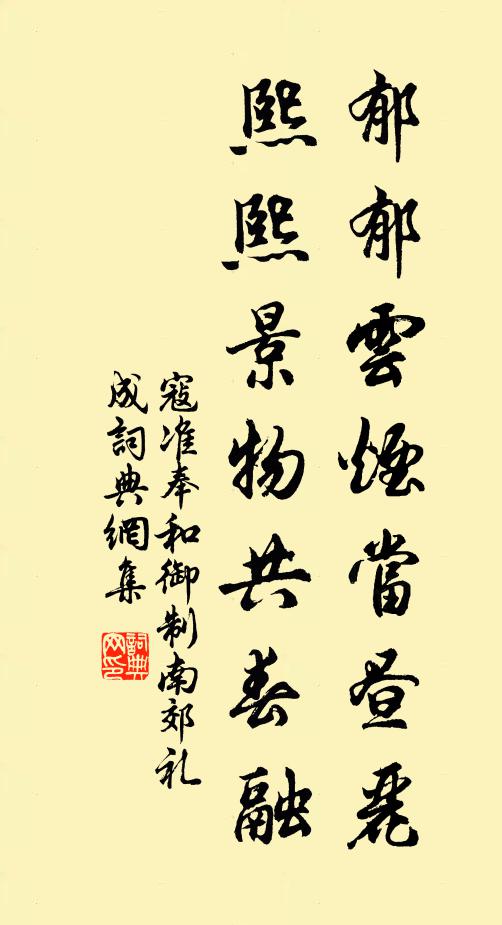 郁郁雲煙當昼麗
熙熙景物共春融
寇准奉和御制南郊礼
成詞典網集
詞典
网印